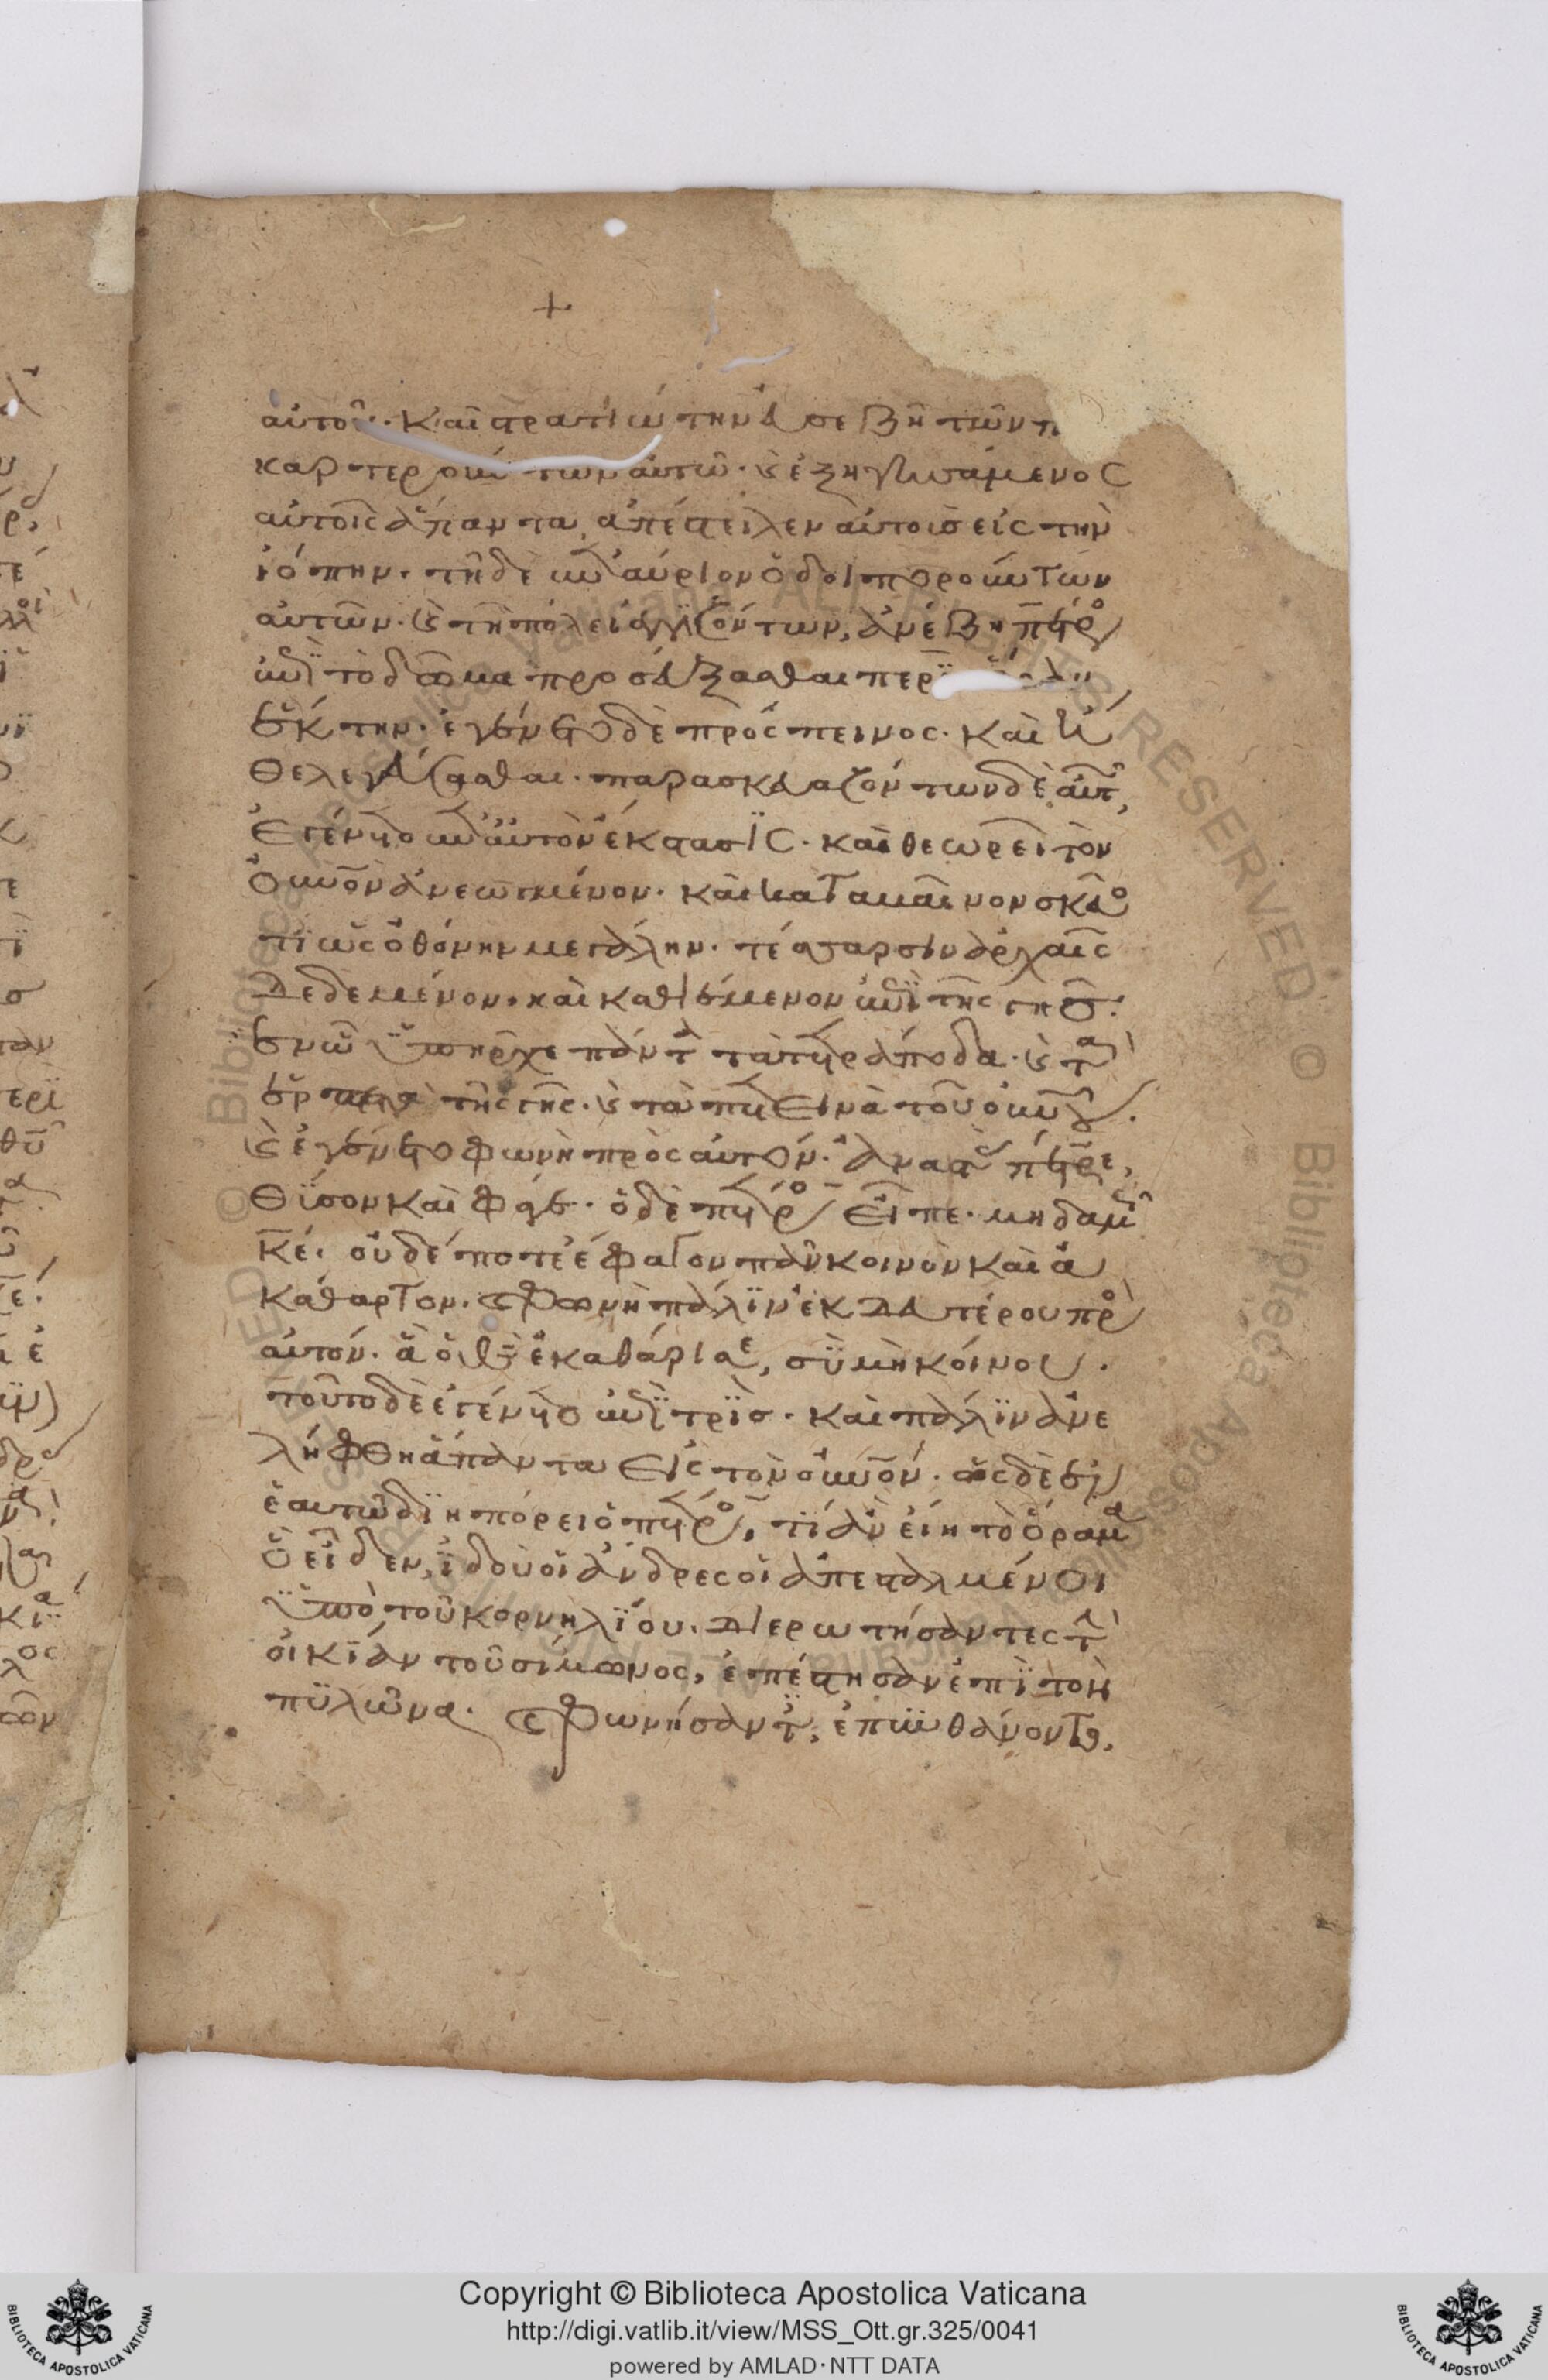 αὐτοῦ. καὶ στρατιώτην εὐσεβῆ τῶν π
καρτερούντων αὐτῶ. καὶ ἐξηγησάμενος
αὐτοῖς ἅπαντα, ἀπέστειλεν αὐτοὺσ εἰς τὴν
ἰόπην. τῆ δὲ ἐπαύριον ὁδοιπορούντων
αὐτῶν. καὶ τῆ πόλει ἐγγϊζόντων, ἀνέβη πέτρο
ἐπῒ τὸ δῶμα προσεύξασθαι περῒ
ἕκτην. ἐγένετο δὲ πρόσπεινος. καὶ ἤ
θελε γεύσασθαι. παρασκευαζόντων δὲ αὐτ
ἐγένετο ἐπ αὐτὸν ἔκστασϊς. καὶ θεωρεῖ τὸν
οὐνὸν ἀνεωγμένον. καὶ καταβαῖνον σκεῦο
τϊ ὡς ὀθόνην μεγάλην. τέσσαρσιν ἀρχαῖς
δεδεμένον. καὶ καθιέμενον ἐπῒ τῆς γῆσ.
ἐν ὧ ϋπῆρχε πάντα τὰ τετράποδα. καὶ τὰ
ἑρπετὰ τῆς γῆς. καὶ τὰ πετεινὰ τοῦ οὐνοῦ.
καὶ ἐγένετο φωνὴ πρὸς αὐτόν. ἀναστὰς πέτρε,
θῦσον καὶ φάγε. ὁ δὲ πέτρο εἶπε. μηδαμῶ
κε. οὐδέποτε ἔφαγον πᾶν κοινὸν καὶ ἀ
κάθαρτον. καὶ φωνὴ πάλϊν ἐκ δευτέρου πρὸ
αὐτόν. ἃ ὁ θς ἐκαθάρισε, σῢ μὴ κοίνου.
τοῦτο δὲ ἐγένετο ἐπῒ τρῒσ. καὶ πάλϊν ἀνε
λήφθη ἅπαντα εἰς τὸν οὐνόν. ὡς δὲ ἐν
ἑαυτῶ διηπόρει ὁ πέτρο, τί ἂν εἴη τὸ ὅραμα
ὃ εἶδεν, ϊδοὺ οἱ ἄνδρες οἱ ἀπεσταλμένοι
ϋπὸ τοῦ κορνηλΐου. διερωτήσαντες τὴ
οἰκίαν τοῦ σίμωνος, ἐπέστησαν ἐπῒ τὸν
πϋλῶνα. καὶ φωνήσαντες, ἐπϋνθάνοντο,
Copyright © Biblioteca Apostolica Vaticana
http://digi.vatlib.it/view/MSS_Ott.gr.325/0041
powered by AMLAD·NTT DATA